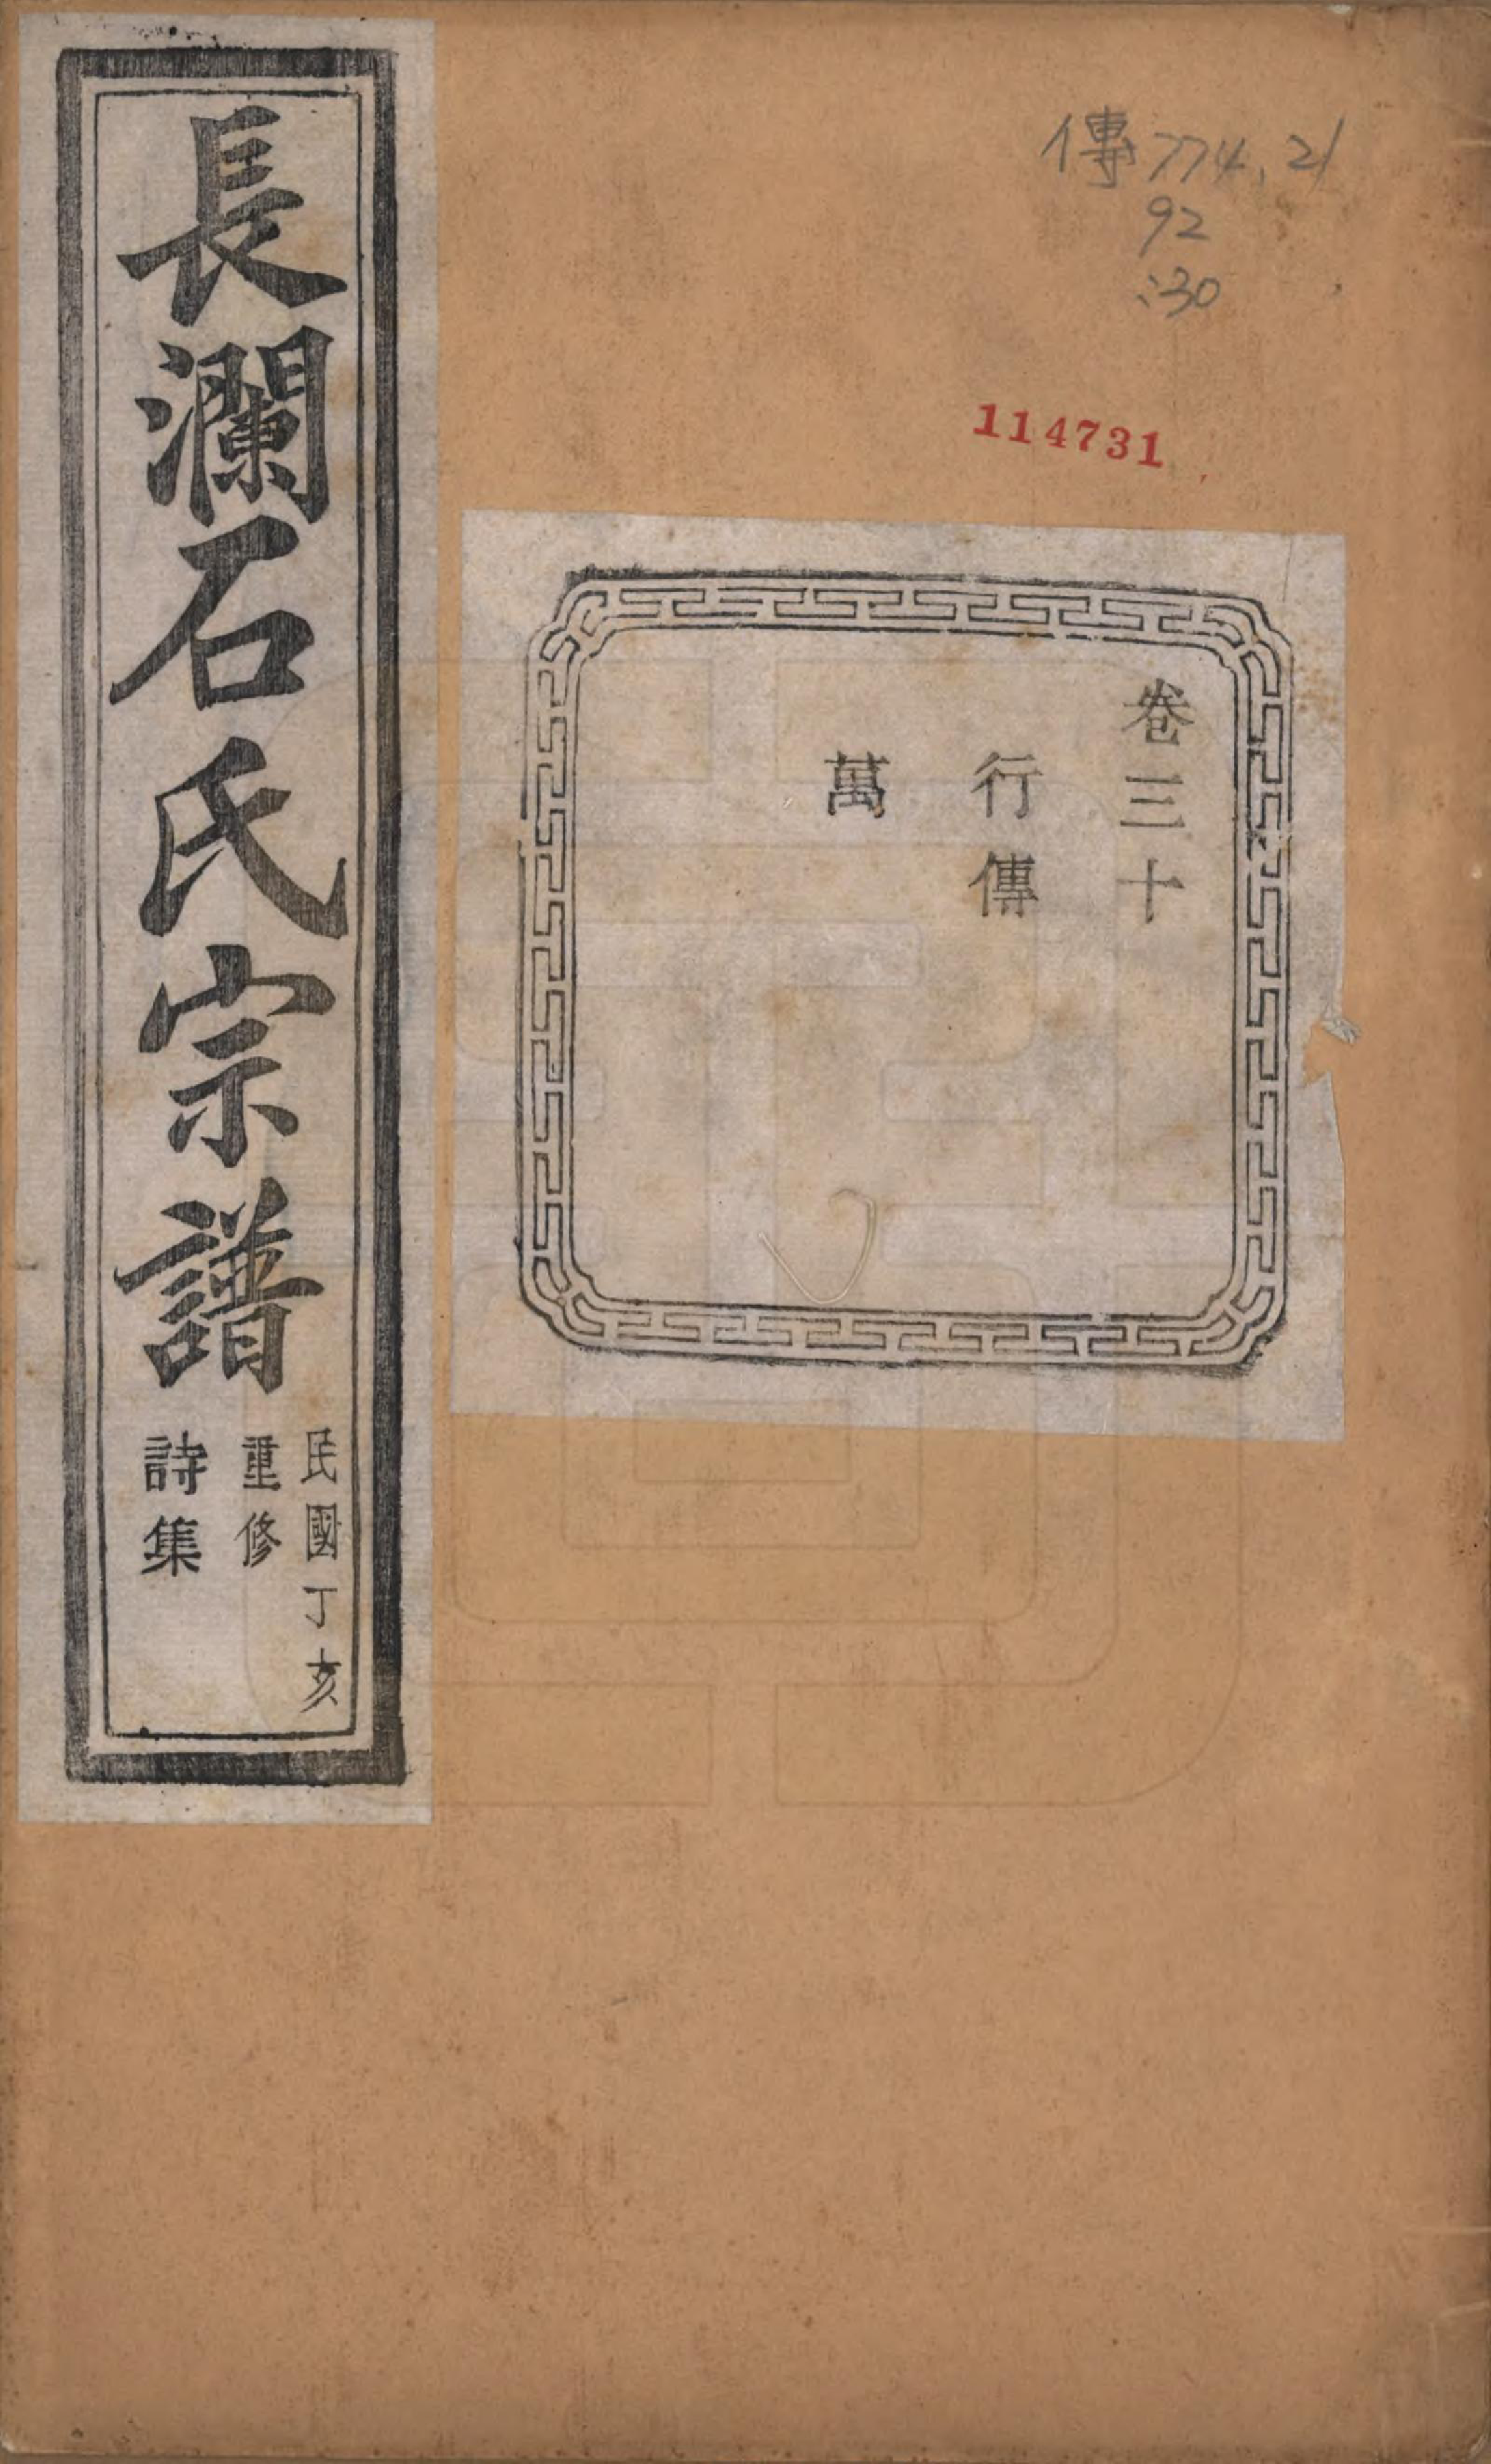 傳774.21
92
:30
114731
卷三十
行傳
萬
長瀾石氏宗譜
民國丁亥
重修
詩集